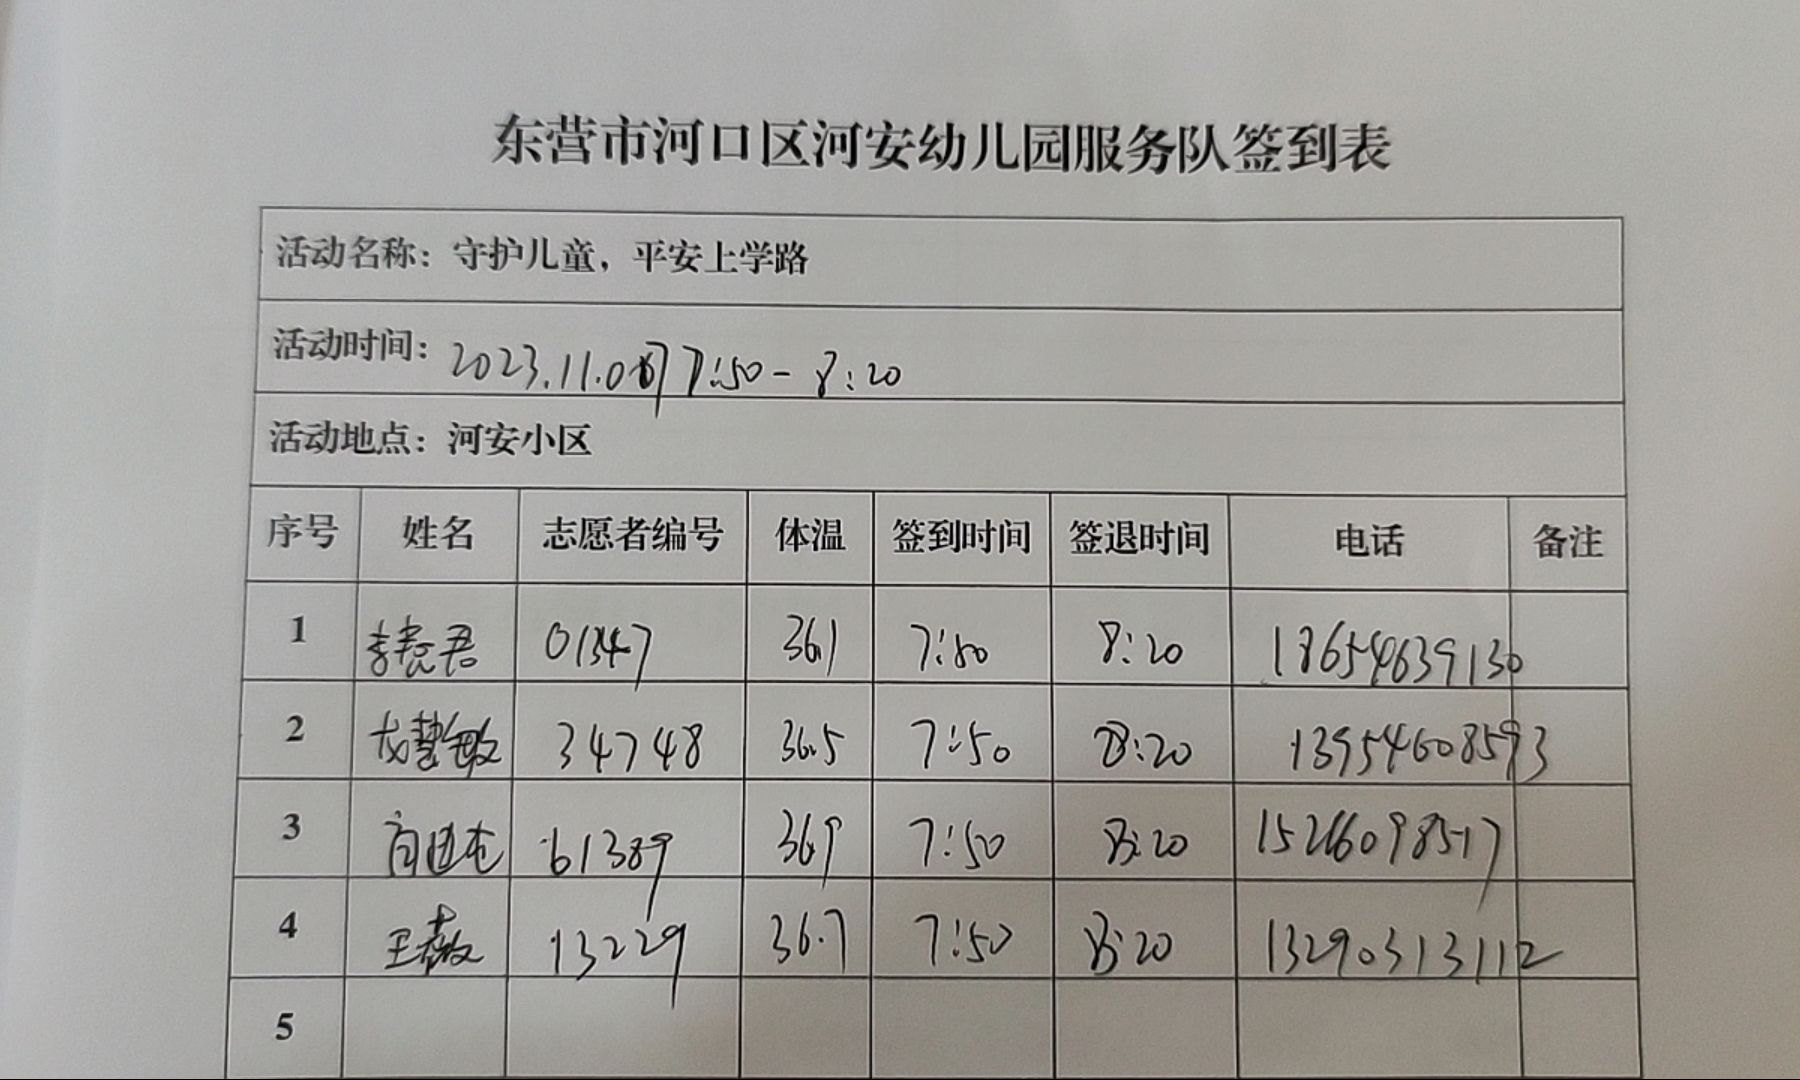 东营市河口区河安幼儿园服务队签到表
活动名称：守护儿童，平安上学路
活动时间：2023.11.07 7:50-8:20
活动地点：河安小区
序号 姓名 志愿者编号 体温 签到时间 签退时间 电话 备注
1 李君 01347 36.1 7:50 8:20 18654639130
2 慧敏 34748 36.5 7:50 8:20 13954608593
3 61389 36.9 7:50 8:20 15266098517
4 王薇 13229 36.7 7:50 8:20 13290313112
5